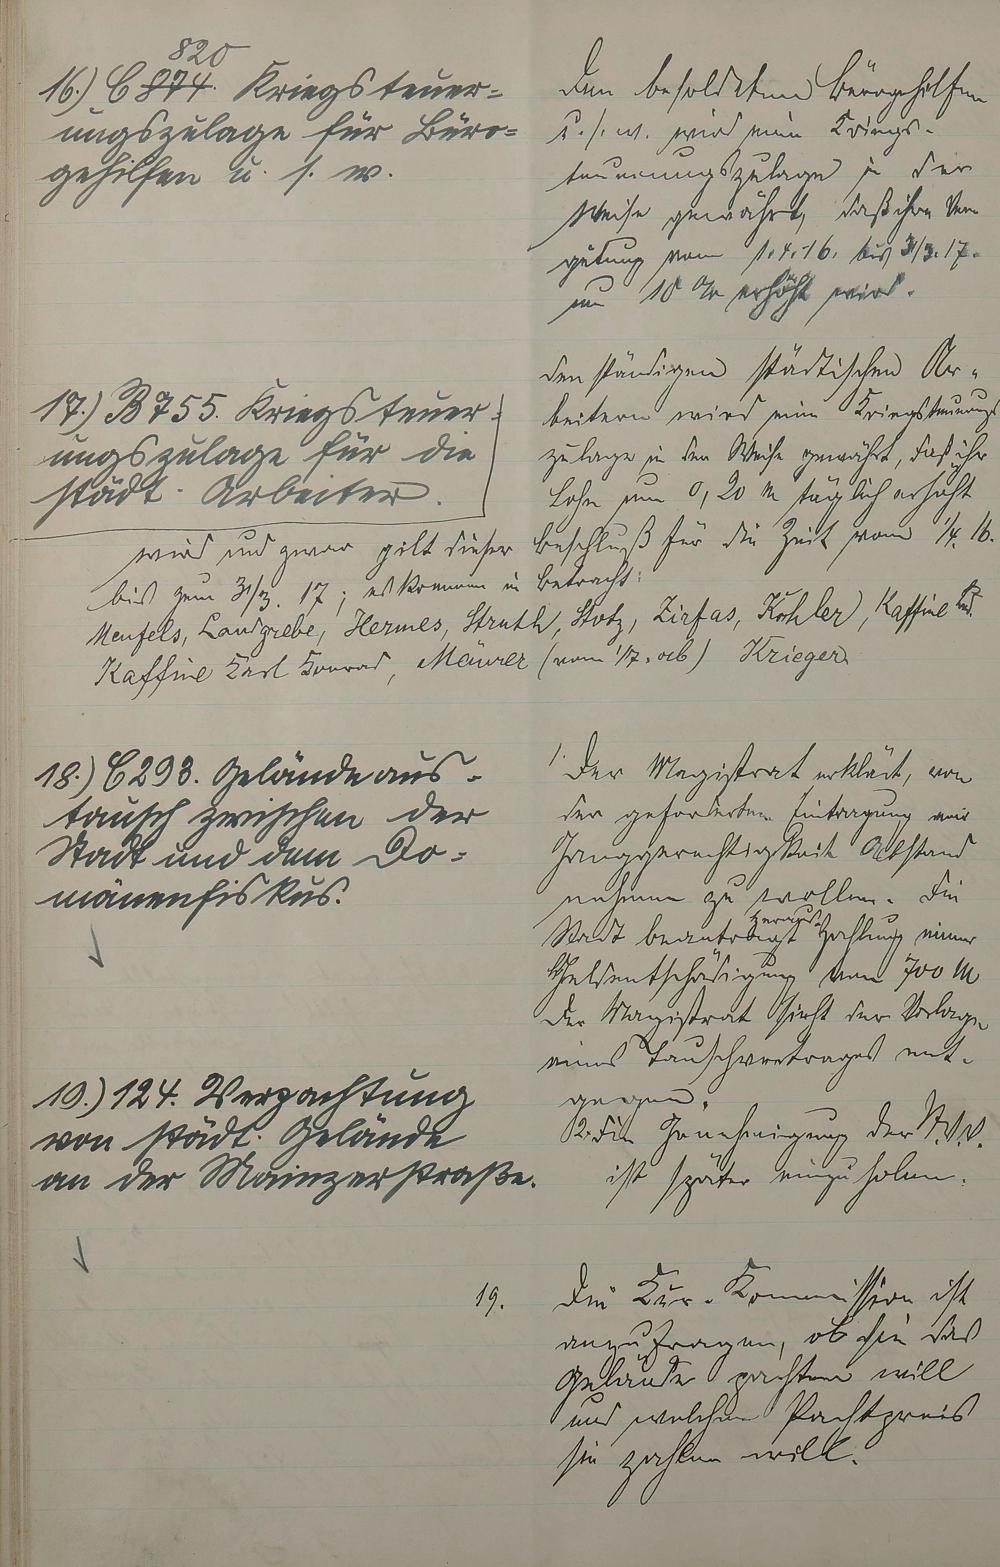 820
16.) C 874. Kriegsteuer-
ungszulage für Büro-
gehilfen u. s. w.
Den besoldeten Bürogehilfen
u. s. w. wird eine Kriegs-
teuerungszulage in der
Weise gewährt, daß ihre Ver
gütung vom 1.4.16. bis 31/3.17.
um 10 % erhöht wird.
17.) B 755. Kriegsteuer-
ungszulage für die
städt. Arbeiter.
den ständigen städtischen Ar-
beitern wird eine Kriegsteuerungs
zulage in der Weise gewährt, daß ihr
Lohn um 0,20 M täglich erhöht
wird und zwar gilt dieser Beschluß für die Zeit vom 1/4. 16.
bis zum 31/3. 17; es kommen in Betracht:
Menfels, Landgrebe, Hermes, Struth, Stotz, Zirfas, Kohler, Kaffine
Kaffine Karl Konrad, Maurer (vom 1/7. ab) Krieger
18.) C 293. Geländeaus-
tausch zwischen der
Stadt und dem Do-
mänenfiskus.
1. Der Magistrat erklärt, von
der geforderten Eintragung einer
Ganggerechtigkeit Abstand
nehmen zu wollen. Die
Stadt beantragt Zahlung einer
Geldentschädigung von 700 M
Der Magistrat sieht der Vorlage
eines Tauschvertrages ent-
gegen.
2. Die Genehmigung der St.V.V.
ist später einzuholen.
19.) 124. Verpachtung
von städt. Gelände
an der Mainzerstraße.
19. Die Kur-Kommission ist
anzufragen, ob sie das
Gelände pachten will
und welchen Pachtpreis
sie zahlen will.